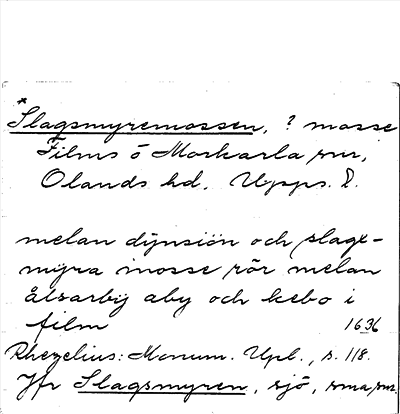 *Slagsmyremossen, ? mosse
Films o Morkarla snr,
Olands hd, Upps. l.
melan dijnsiön och slags-
myra mosse rör melan
ålsarby aby och kebo i
film 1636
Rhezelius: Monum. Upl., s. 118.
Jfr Slagsmyren, sjö, sma snr.